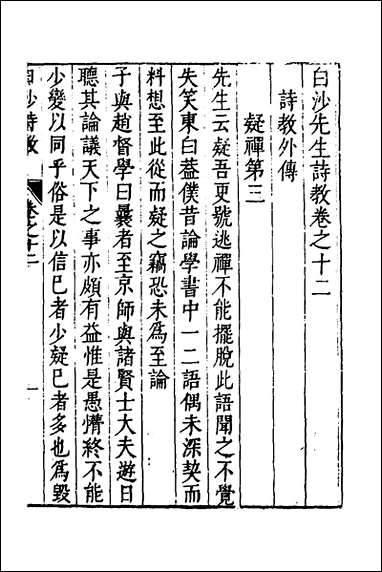 白沙先生詩教卷之十二
詩教外傳
疑禪第三
先生云疑吾更號逃禪不能擺脫此語聞之不覺
失笑東白葢僕昔論學書中一二語偶未深契而
料想至此從而疑之竊恐未為至論
子與趙督學曰曩者至京師與諸賢士大夫遊日
聽其論議天下之事亦頗有益惟是愚懵終不能
少變以同乎俗是以信巳者少疑巳者多也為毀
白沙詩教 卷之十二 一